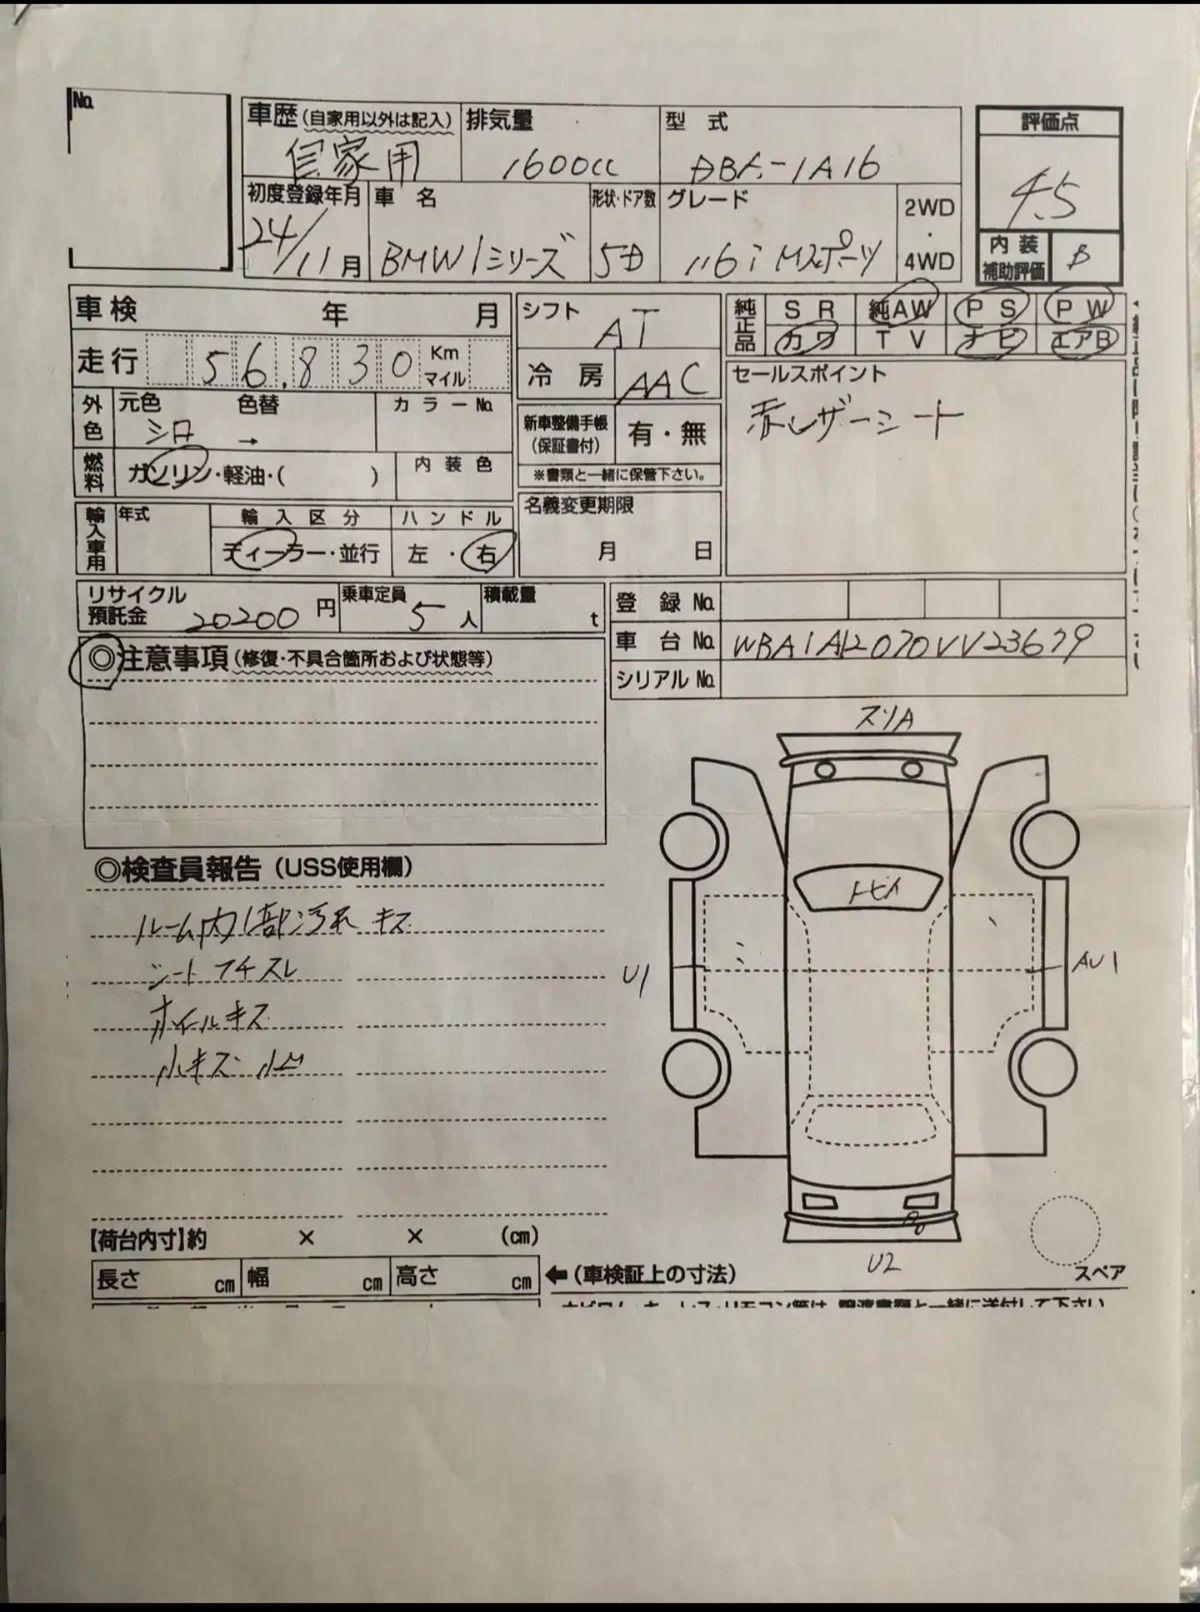 No.
車歴 (自家用以外は記入) 排気量 型式 評価点
自家用 1600cc DBA-1A16 4.5
初度登録年月 車名 形状・ドア数 グレード 2WD・4WD
24/11月 BMW 1シリーズ 5D 116i Mスポーツ
内装補助評価 B
車検 年 月 シフト AT 純正品 SR 純AW PS PW
カワ TV ナビ エアB
走行 56.830 Km マイル 冷房 AAC セールスポイント
赤レザーシート
外色 元色 色替 カラーNo.
シロ →
新車整備手帳(保証書付) 有・無
※書類と一緒に保管下さい。
燃料 ガソリン・軽油・( ) 内装色
名義変更期限
月 日
輸入車用 年式 輸入区分 ハンドル
ディーラー・並行 左・右
リサイクル預託金 20200円 乗車定員 5人 積載量 t
登録No.
車台No. WBA1A12070VV23679
シリアルNo.
◎注意事項(修復・不具合箇所および状態等)
スリA
◎検査員報告(USS使用欄)
ルーム内1部汚れ キズ
シートフチスレ
ホイールキズ
小キズ
トビイ
U1
AU1
U2
【荷台内寸】約 × × (cm)
長さ cm 幅 cm 高さ cm ←(車検証上の寸法)
スペア